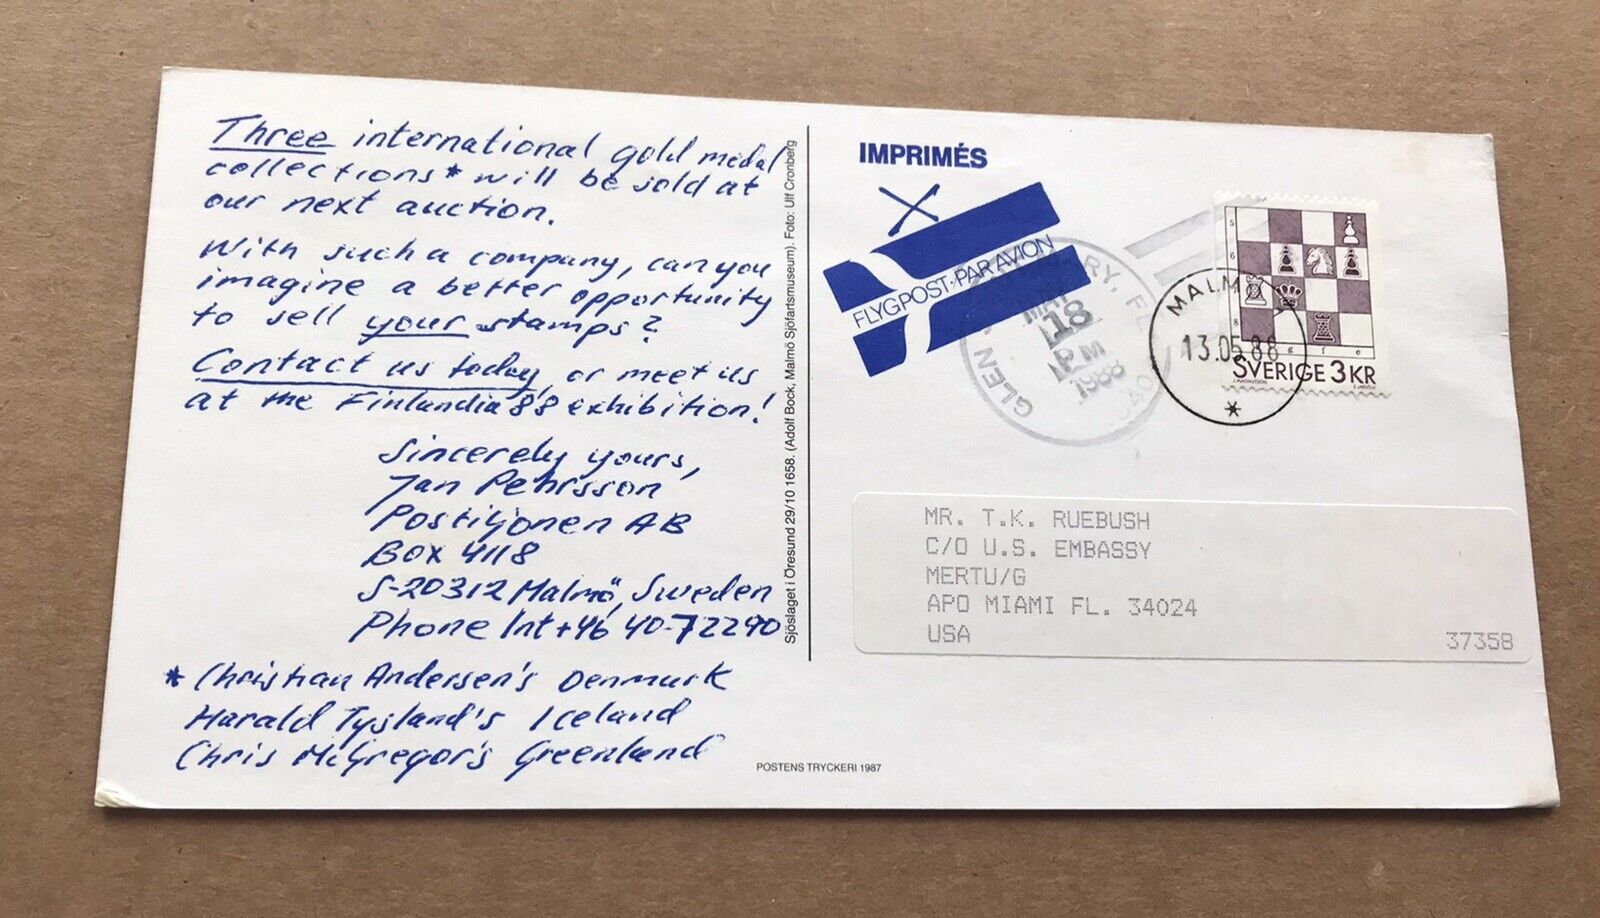 Three international gold medal
collections* will be sold at
our next auction.
With such a company, can you
imagine a better opportunity
to sell your stamps?
Contact us today, or meet us
at the Finlandia 88 exhibition!
Sincerely yours,
Jan Pehrsson
Postiljonen AB
Box 4118
S-20312 Malmö, Sweden
Phone Int+46 40-72290
* Christian Andersen's Denmark
Harald Tysland's Iceland
Chris McGregor's Greenland
Sjöslaget i Öresund 29/10 1658. (Adolf Bock, Malmö Sjöfartsmuseum). Foto: Ulf Cronberg
POSTENS TRYCKERI 1987
IMPRIMÉS
FLYGPOST·PAR AVION
GLEN RY, FL
MAY
18
PM
1988
MALMÖ
13.05.88
*
5
6
8
g f e
SVERIGE 3 KR
MR. T.K. RUEBUSH
C/O U.S. EMBASSY
MERTU/G
APO MIAMI FL. 34024
USA
37358